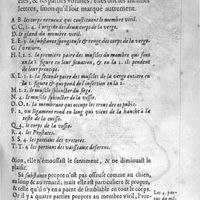 cies, & les parties voisines; elles ont les mesmes
lettres, sinon qu'il soit marqué autrement.
A B. les corps nerveux qui constituent le membre viril.
C C, 2. 4. l'origine des deux corps de la verge.
D. le gland du membre viril.
E E, 3. la substance fongueuse & rouge des corps de la verge.
G. l'uretre.
H H, 1. 2. la premiere paire des muscles du membre qui sont
en la 1. figure en leur situation, & en la 2. ils pendent
de leur principe.
K L, 1. 2. la seconde paire des muscles de la verge entiere en
la 1. figure & qui pend en la 2.
M. le muscle du siege.
N, 4. le muscle suborbiter de la vessie.
O. la membrane qui occupe les trous des os pubis.
P, 1. un ligament rond en long qui vient de la hanche à la
teste de la cuisse.
Q, 4. le corps de la vessie.
R, 4. les Prostates.
S S, 4. portions des ureteres.
T T, 4. portions des vaisseaux deferens.
ction, elle n'émoussast le sentiment, & ne diminuast le
plaisir.
Sa substance propre n'est pas osseuse comme au chien,
au loup & au renard; mais elle est particuliere & propre,
& telle qu'il n'y en a point de semblable en tout le corps.
Or il y a quatre parties propres au membre viril,
Les 4. par-